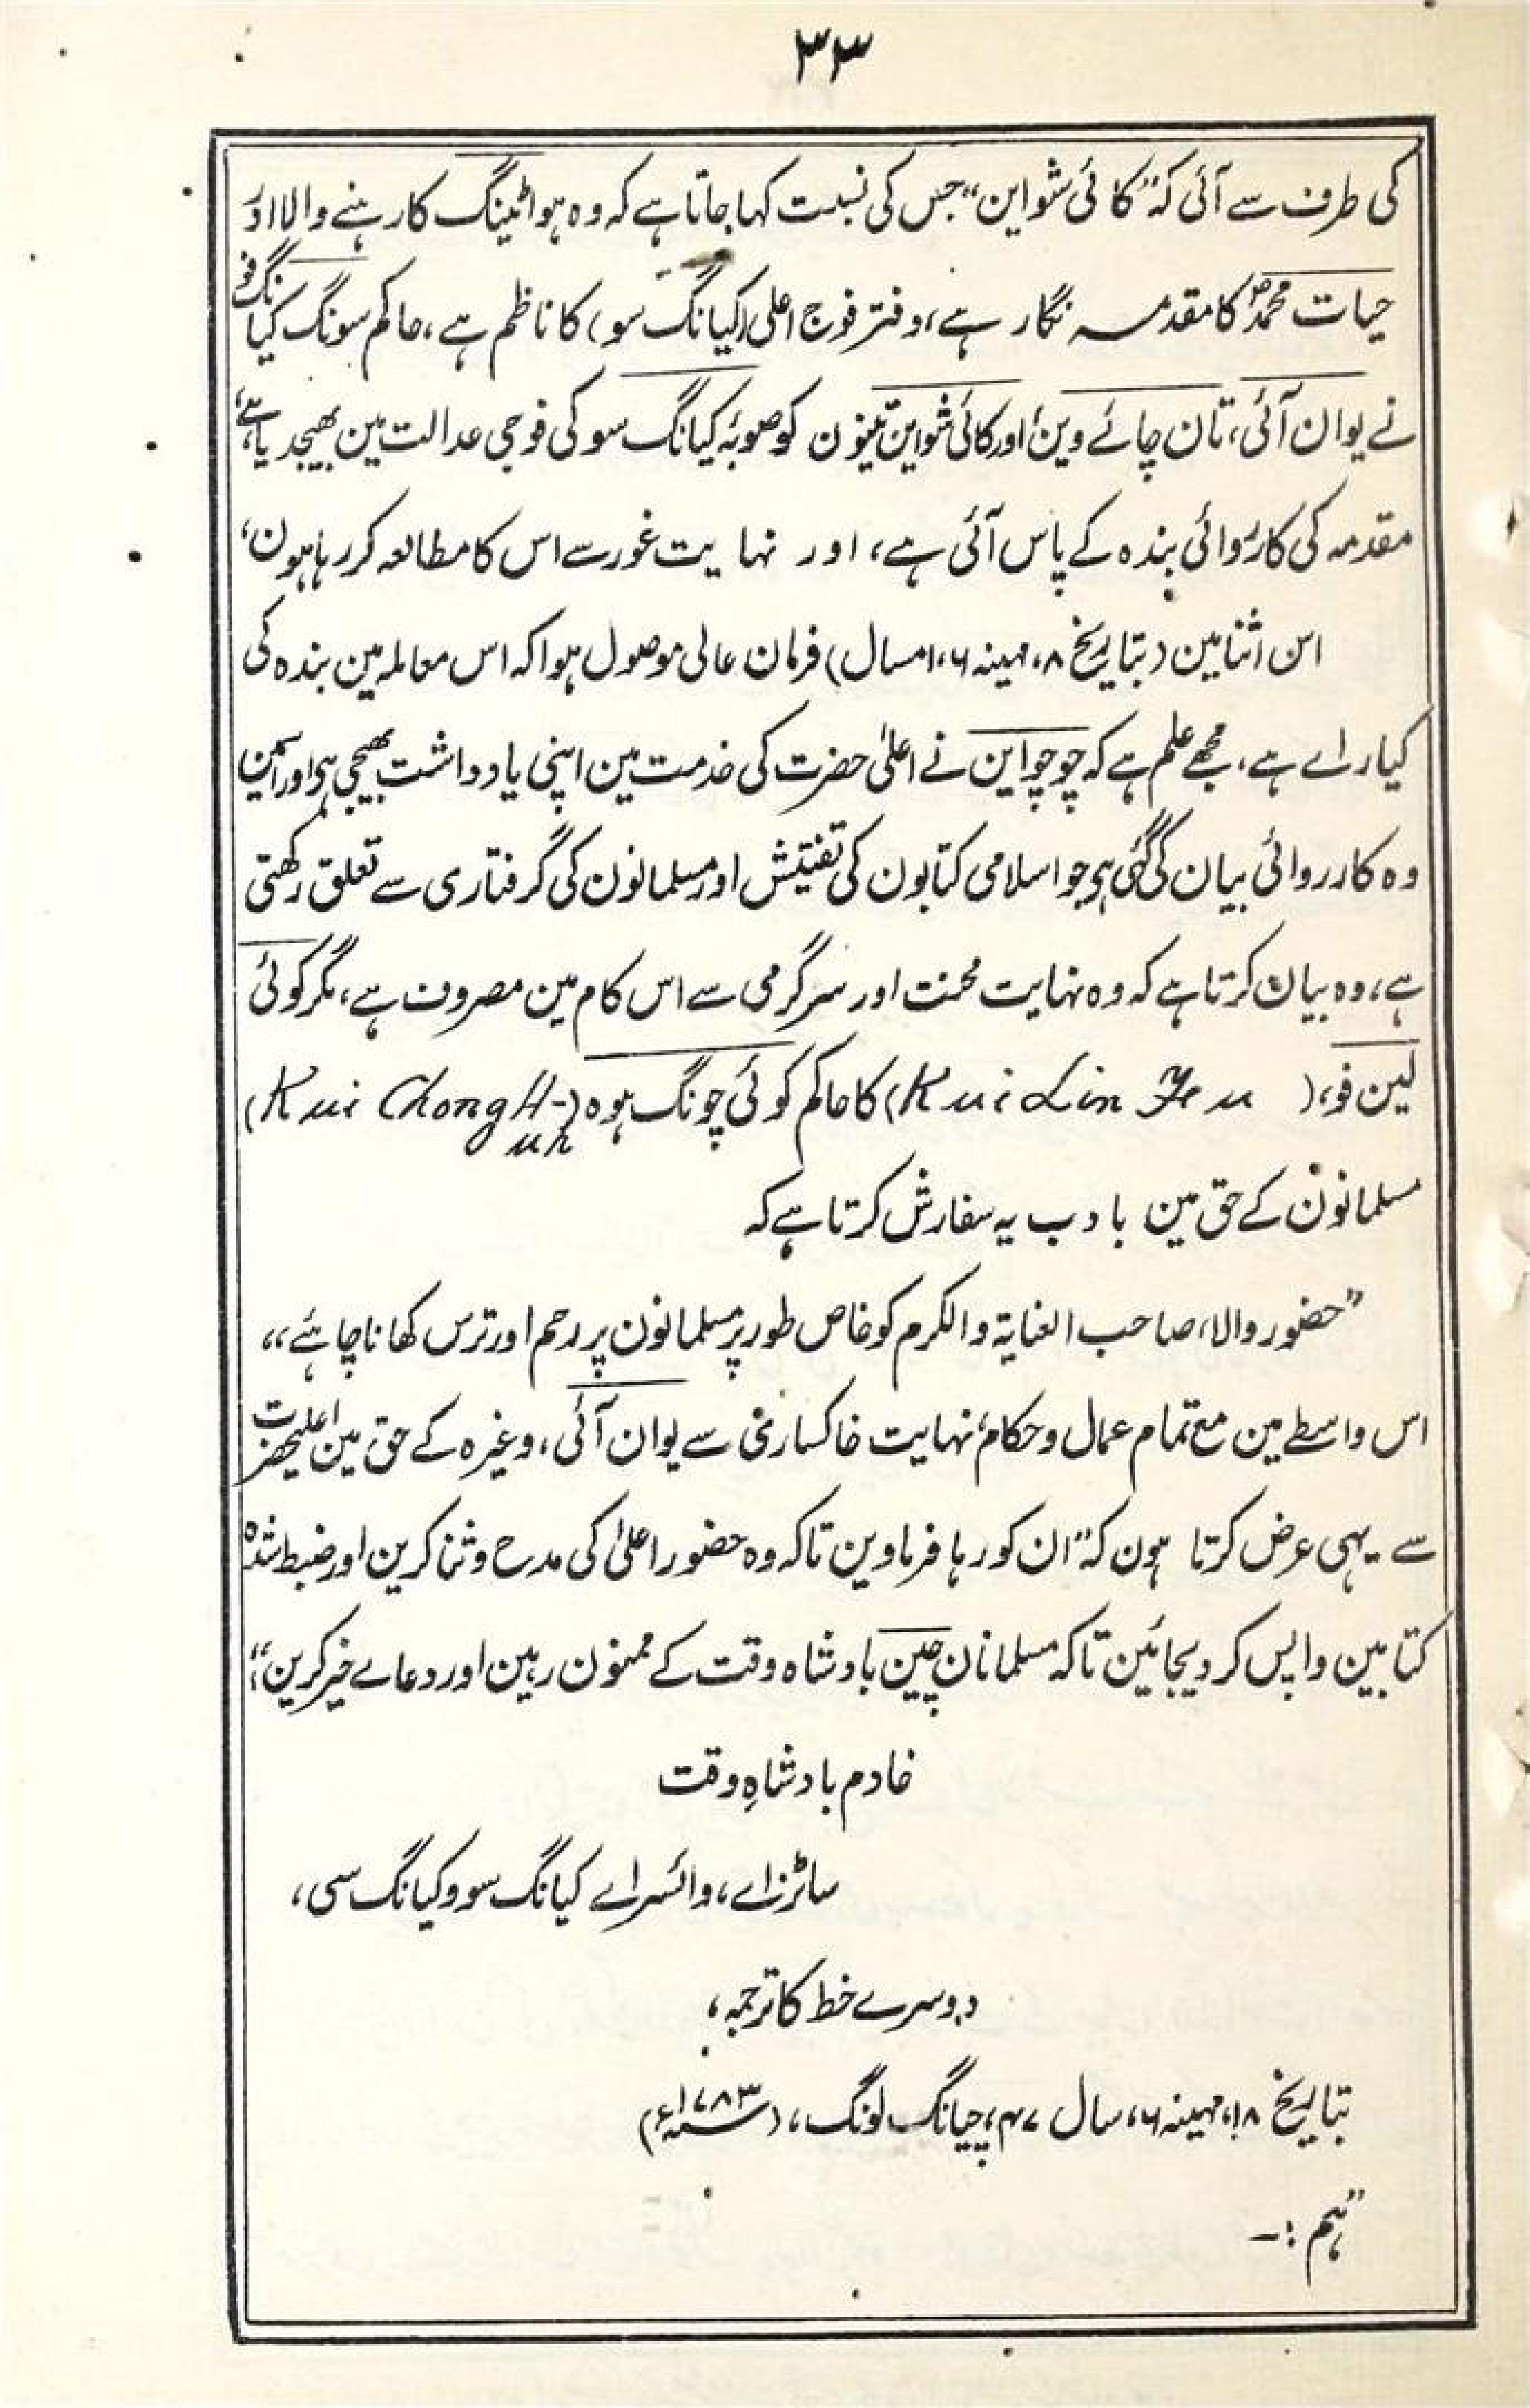 ۳۳
کی طرف سے آئی کہ "کائی شواین" جس کی نسبت کہا جاتا ہے کہ وہ ہواٹینگ کا رہنے والا اور
حیات محمدؐ کا مقدمہ نگار ہے، دفتر فوج اعلی (کیانگ سو) کا ناظم ہے، حاکم سونگ کیانگ فو
نے یوان آئی، تان چائے وین، اور کائی شواین تینون کو صوبۂ کیانگ سو کی فوجی عدالت مین بھیجدیا ہے،
مقدمہ کی کارروائی بندہ کے پاس آئی ہے، اور نہایت غور سے اس کا مطالعہ کر رہا ہون،
اس اثنا مین (بتاریخ ۸، مہینہ ۶، امسال) فرمان عالی موصول ہوا کہ اس معاملہ مین بندہ کی
کیا راے ہے، مجھے علم ہے کہ چوچواین نے اعلیٰ حضرت کی خدمت مین اپنی یادداشت بھیجی ہی اور اسمین
وہ کارروائی بیان کی گئی ہی جو اسلامی کتابون کی تفتیش اور مسلمانون کی گرفتاری سے تعلق رکھتی
ہے، وہ بیان کرتا ہے کہ وہ نہایت محنت اور سرگرمی سے اس کام مین مصروف ہے، مگر کوئی
لین فو، (Kui Lin Fu) کا حاکم کوئی چونگ ہوہ (Kui Chong H-uh)
مسلمانون کے حق مین بادب یہ سفارش کرتا ہے کہ
"حضور والا، صاحب العنایۃ والکرم کو خاص طور پر مسلمانون پر رحم اور ترس کھانا چاہئے"
اس واسطے مین مع تمام عمال و حکام، نہایت خاکساری سے یوان آئی، وغیرہ کے حق مین اعلیحضرت
سے یہی عرض کرتا ہون کہ "ان کو رہا فرماوین تاکہ وہ حضور اعلیٰ کی مدح و ثنا کرین اور ضبط شدہ
کتابین واپس کر دیجائین تاکہ مسلمانان چین بادشاہ وقت کے ممنون رہین اور دعاے خیر کرین"؛
خادم بادشاہِ وقت
ساٹزاے، وائسراے کیانگ سو و کیانگ سی،
دوسرے خط کا ترجمہ،
بتاریخ ۱۸، مہینہ ۶، سال ۴۷، چیانگ لونگ، (۱۷۸۳ء)
"ہم :-